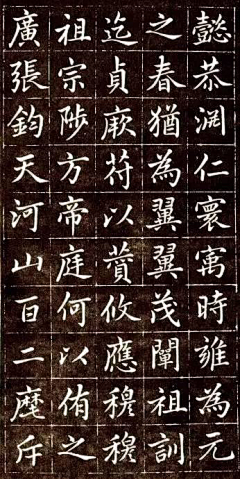 懿恭渊仁寰寓時雍為元
之春猶為翼翼茂闡祖訓
迄貞厥苻以攸應穆穆
祖宗陟方帝庭何以侑之
廣張鈞天河山百二麾斥